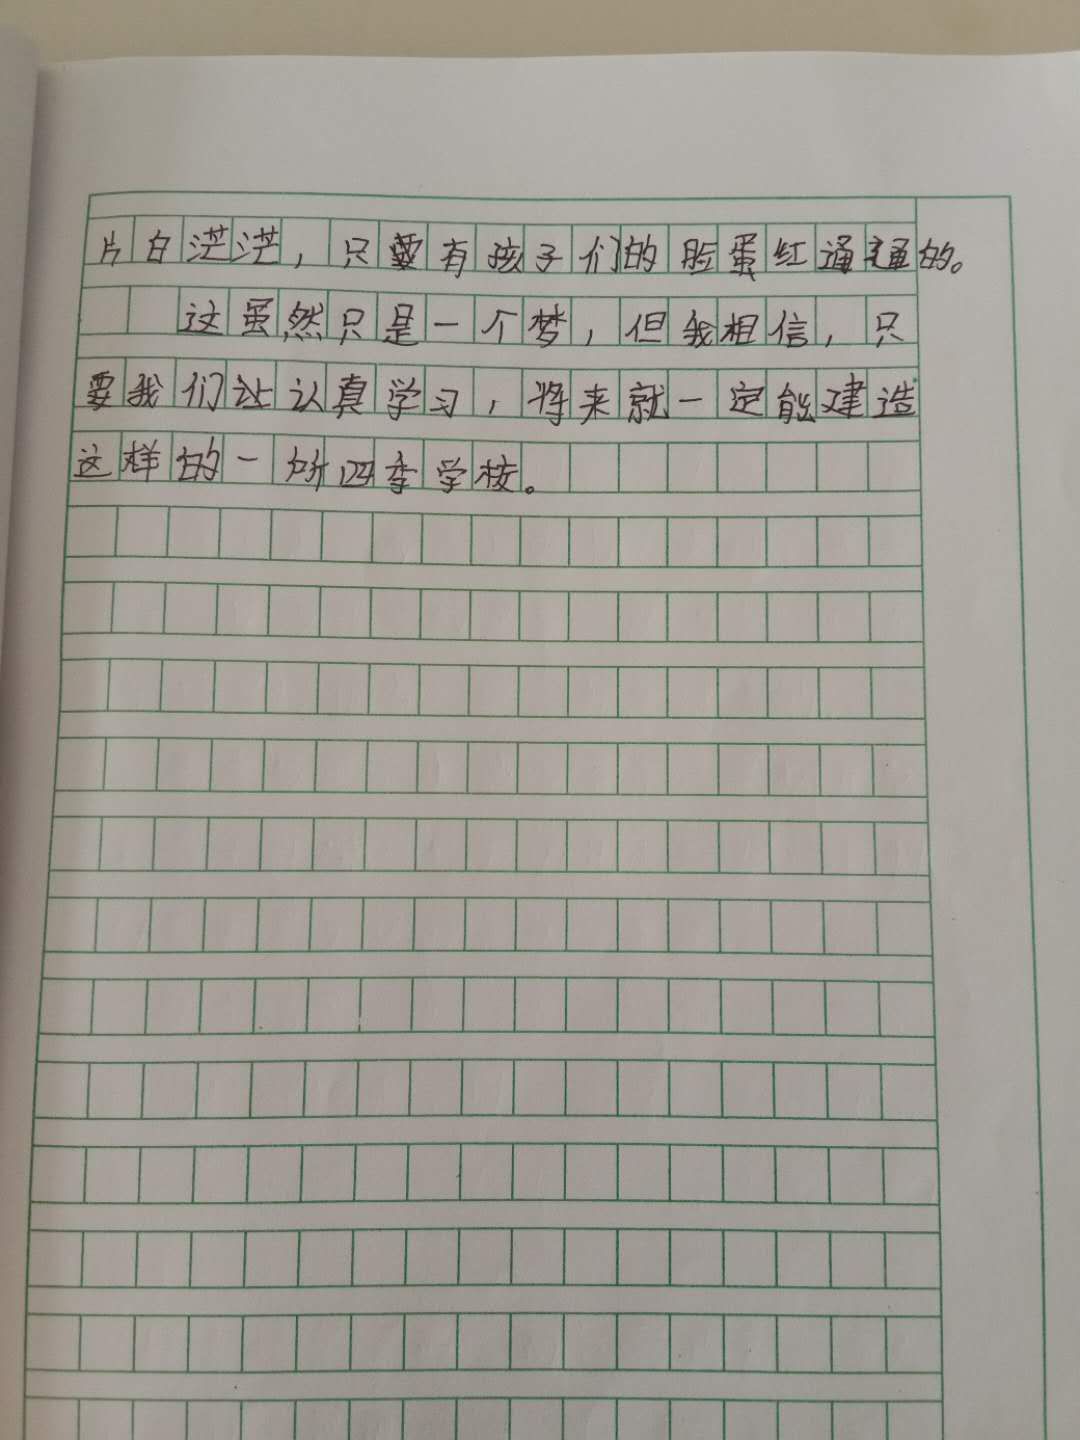 片白茫茫，只要有孩子们的脸蛋红通通的。
这虽然只是一个梦，但我相信，只
要我们让认真学习，将来就一定能建造
这样的一所四季学校。